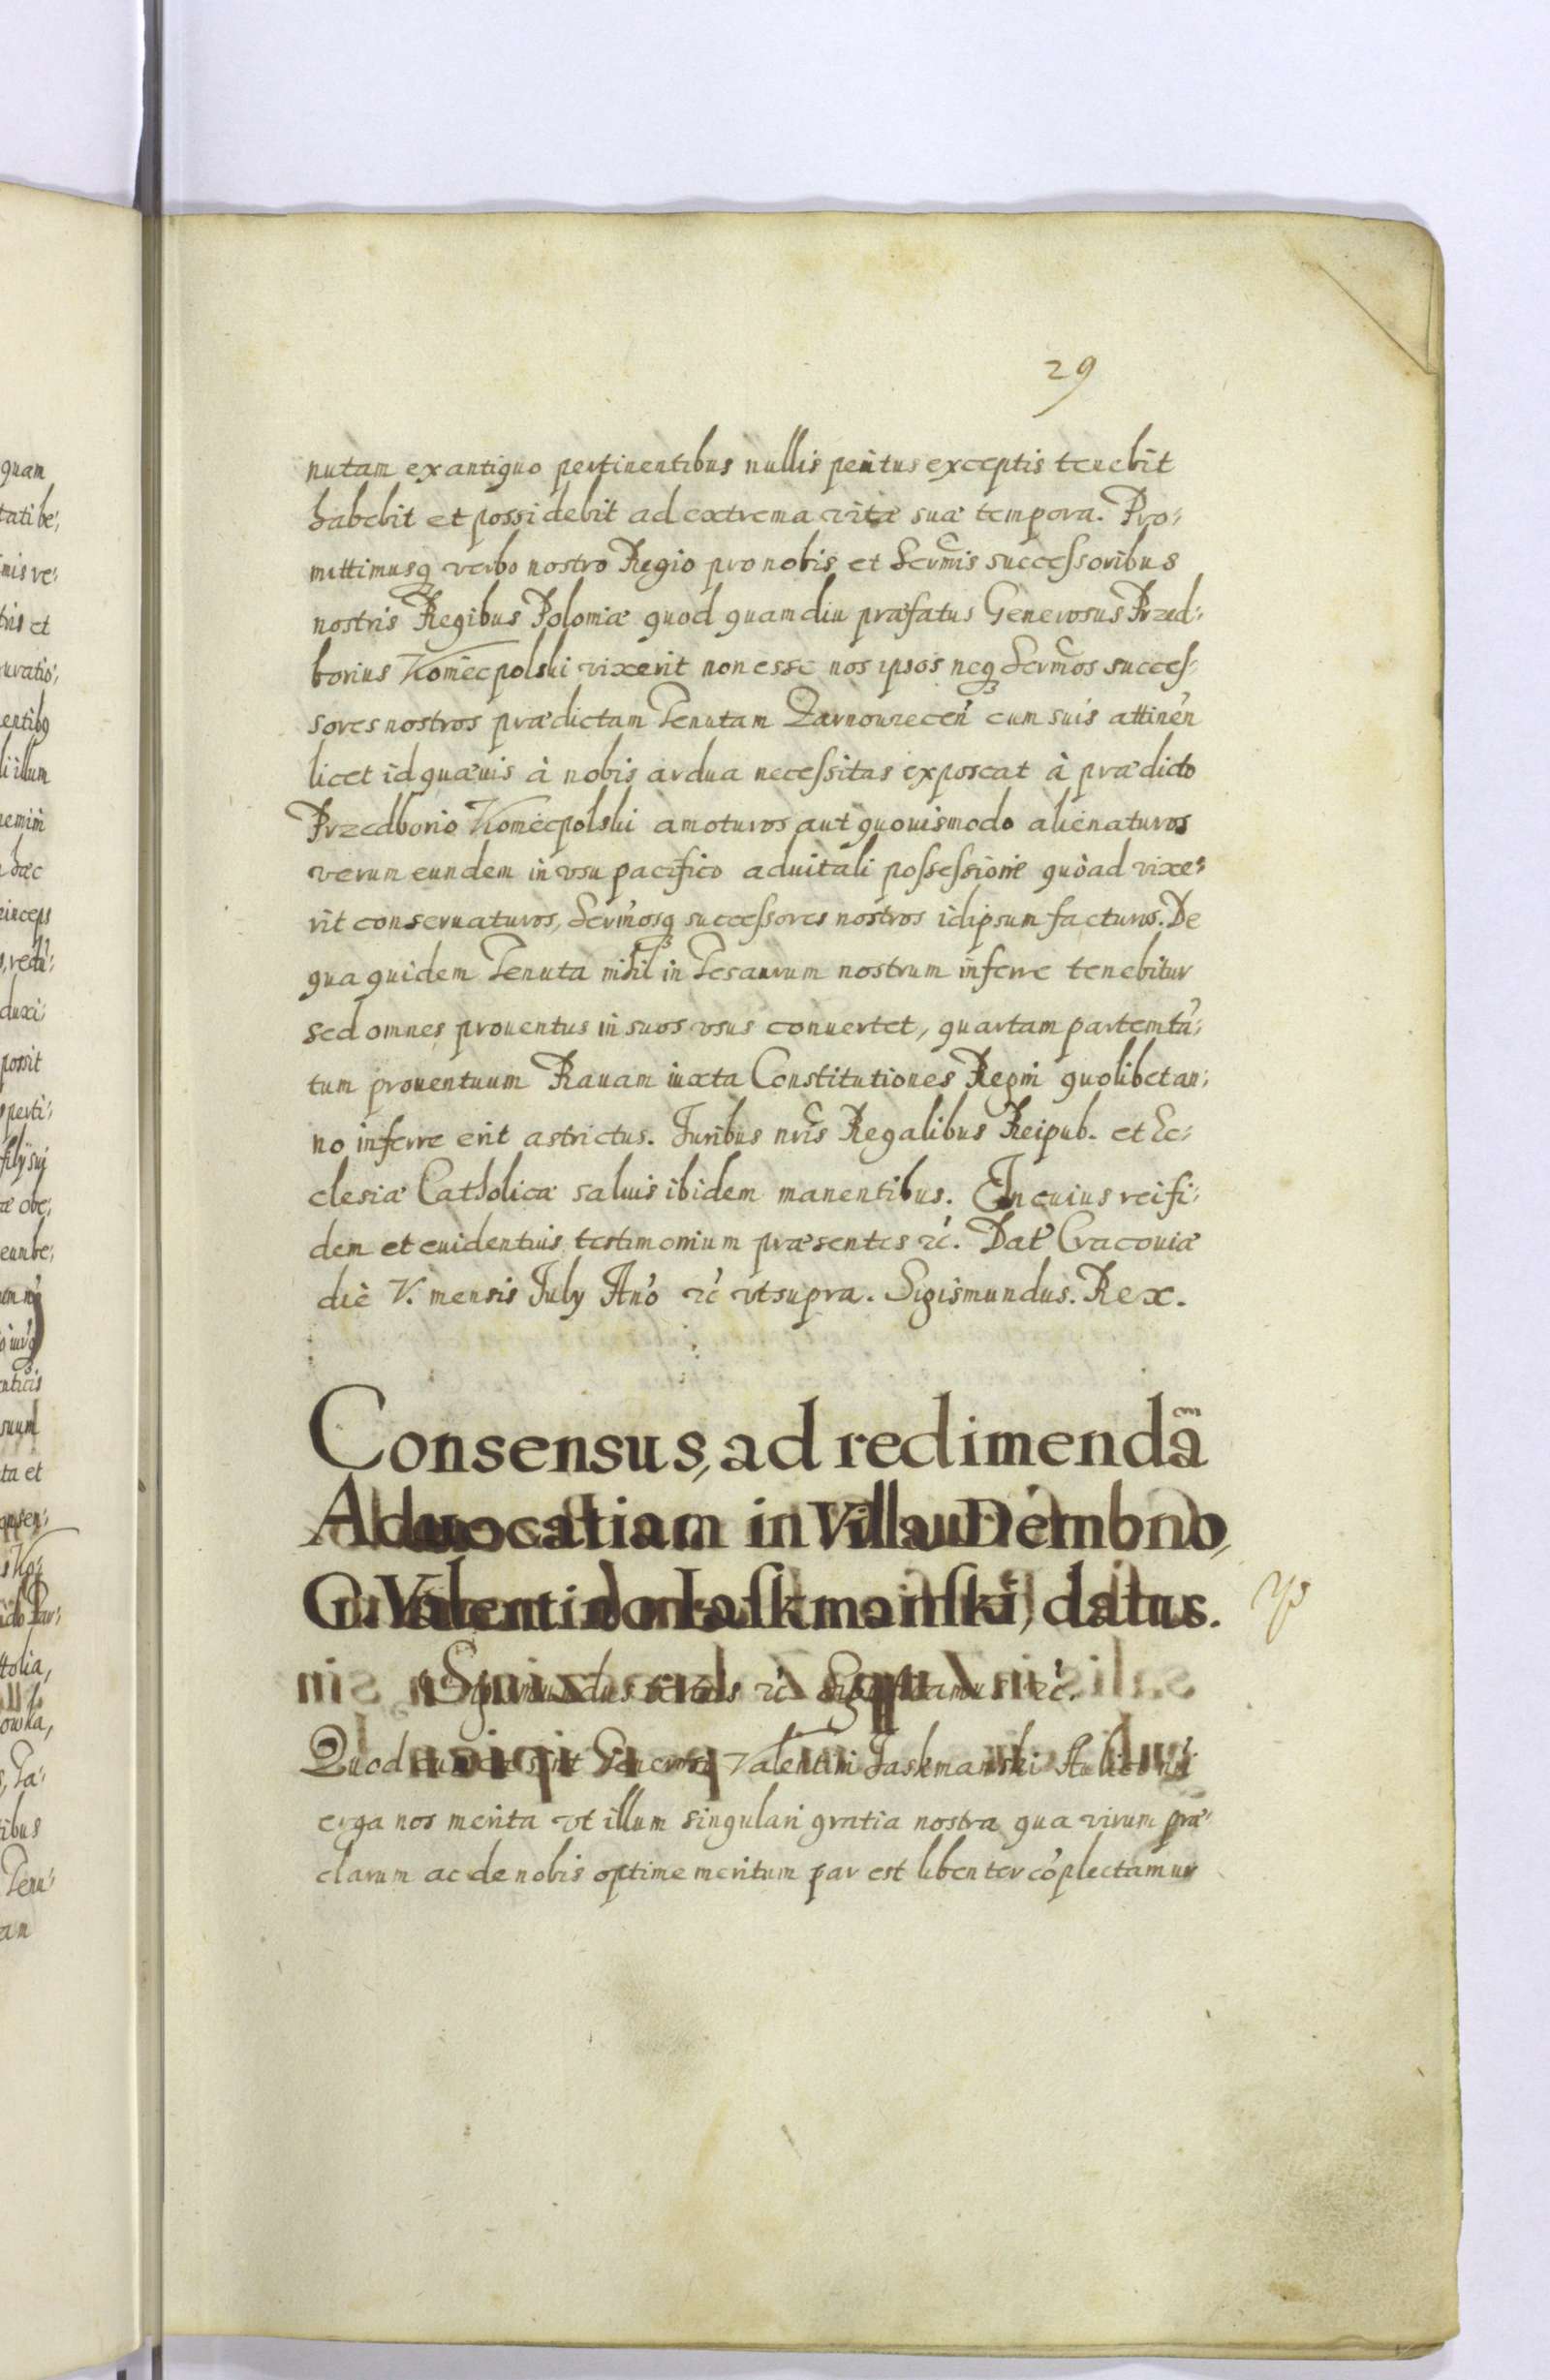 29
nutam ex antiquo pertinentibus nullis penitus exceptis tenebit
habebit et possidebit ad extrema vitæ suæ tempora. Pro,
mittimusq verbo nostro Regio pro nobis et Sermis successoribus
nostris Regibus Poloniæ quod quamdiu præfatus Generosus Przed,
borius Koniecpolski vixerit non esse nos ipsos neq Sermos succes,
sores nostros prædictam Tenutam Zarnouiecen cum suis attinen
licet id quæuis à nobis ardua necessitas exposcat à prædicto
Przedborio Koniecpolski amoturos aut quouismodo alienaturos
verum eundem in vsu pacifico aduitali possessione quoad vixe,
rit conseruaturos, Sermosq successores nostros idipsum facturos. De
qua quidem Tenuta nihil in Tesaurum nostrum inferre tenebitur
sed omnes prouentus in suos vsus conuertet, quartam partem tá,
tum prouentuum Rauam iuxta Constitutiones Regni quolibet an,
no inferre erit astrictus. Juribus nris Regalibus Reipub. et Ec,
clesiæ Catholicæ saluis ibidem manentibus. In cuius rei fi,
dem et euidentius testimonium præsentes rc. Dat Cracouiæ
die V. mensis July Ano rc vt supra. Sigismundus. Rex.
Consensus, ad redimendã
Aduocatiam in Villa Dembno,
G. Valentino Iaſkmaniſki, datus.
Sigismundus tertius rc Significamus rc.
Quod ea sint Generosi Valentini Jaskmanski Aulici nri
erga nos merita vt illum singulari gratia nostra qua virum præ,
clarum ac de nobis optime meritum par est libenter coplectamur